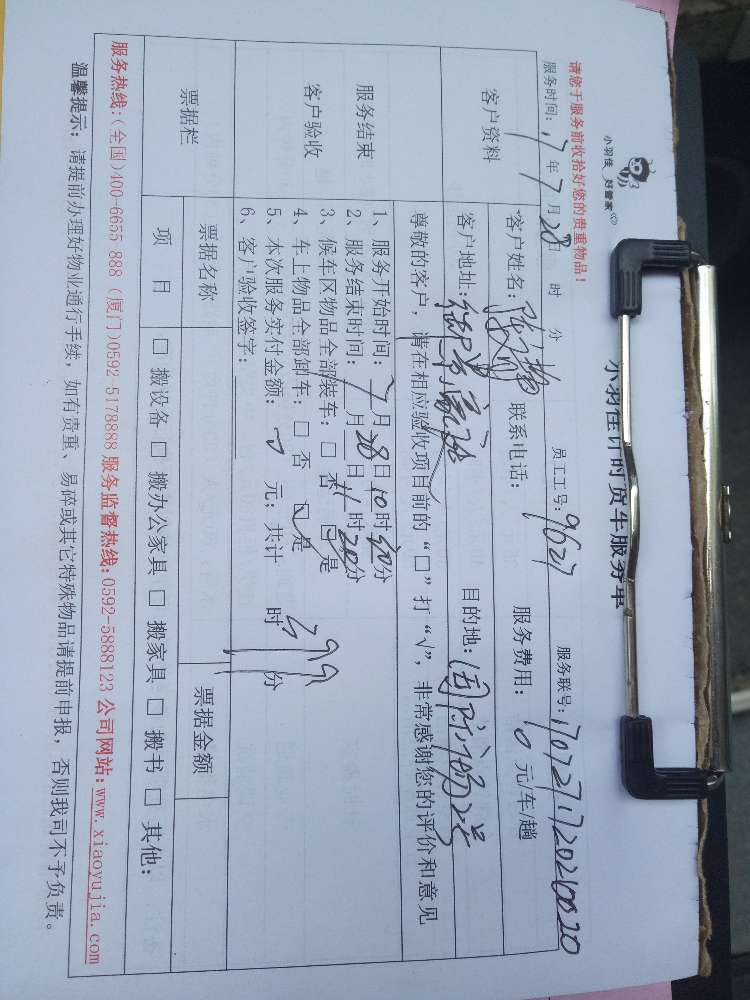 小羽佳 好管家
小羽佳计时货车服务单
请您于服务前收拾好您的贵重物品!
服务时间: 17 年 7 月 28 日 时 分 员工工号: 9627 服务联号: 170727172026020
客户资料
客户姓名: 联系电话: 服务费用: 0 元/车/趟
客户地址: 目的地:
尊敬的客户,请在相应验收项目前的“□”打“√”,非常感谢您的评价和意见
服务结束
客户验收
1、服务开始时间: 7 月 28 日 10 时 40 分
2、服务结束时间: 7 月 28 日 11 时 20 分
3、候车区物品全部装车: □ 否 ☑ 是
4、车上物品全部卸车: □ 否 ☑ 是
5、本次服务实付金额: 元; 共计 时 分
6、客户验收签字:
299
票据栏
票据名称 票据金额
项 目 □ 搬设备 □ 搬办公家具 □ 搬家具 □ 搬书 □ 其他:
服务热线:(全国)400-6655 888 (厦门)0592-5178888 服务监督热线:0592-5888123 公司网站:www.xiaoyujia.com
温馨提示: 请提前办理好物业通行手续,如有贵重、易碎或其它特殊物品请提前申报,否则我司不予负责。